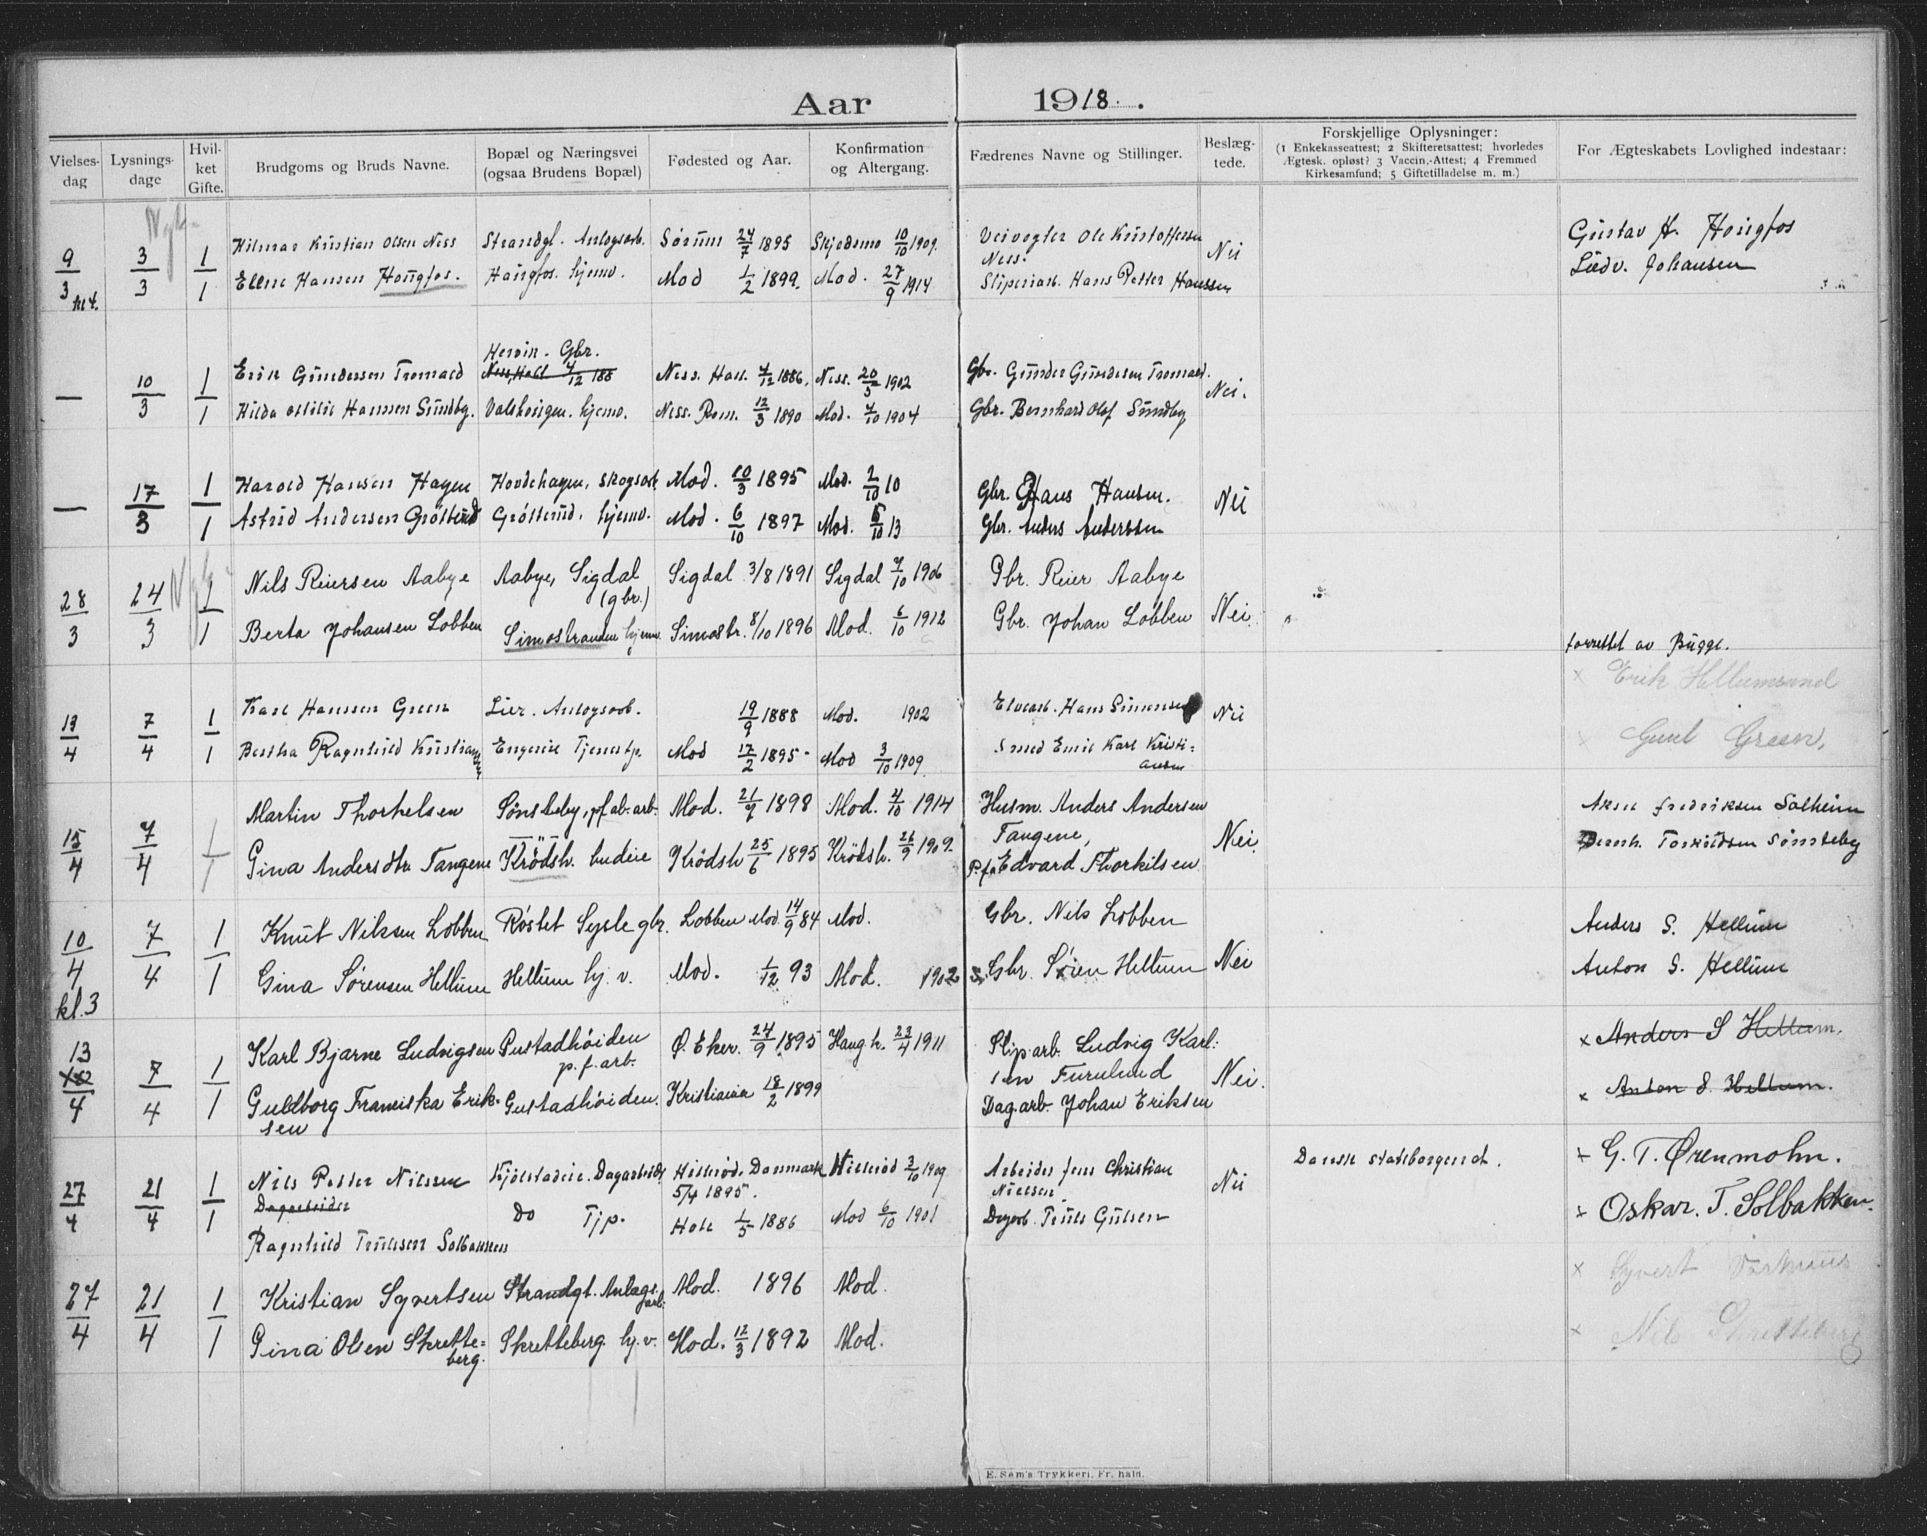 Aar 1918.
Vielses-dag | Lysnings-dage | Hvil-ket Gifte. | Brudgoms og Bruds Navne. | Bopæl og Næringsvei (ogsaa Brudens Bopæl) | Fødested og Aar. | Konfirmation og Altergang. | Fædrenes Navne og Stillinger. | Beslæg-tede. | Forskjellige Oplysninger: (1 Enkekasseattest; 2 Skifteretsattest; hvorledes Ægtesk. opløst? 3 Vaccin.-Attest; 4 Fremmed Kirkesamfund; 5 Giftetilladelse m. m.) | For Ægteskabets Lovlighed indestaar:
9/3 | 3/3 | 1 | Hilmar Kristian Olsen Ness | Strandgt. Anlegsarb. | Sørum 24/7 1895 | Skjedsmo 10/10 1909. | Veivogter Ole Kristoffersen Ness. | Nei | Gustav H. Hougfos
1 | Ellene Hansen Hougfos. | Hougfos. hjemv. | Mod 1/2 1899. | Mod. 27/9 1914 | Sliperiarb. Hans Petter Hanssen | Ludv. Johansen
— | 10/3 | 1 | Erik Gundersen Tromald | Hervin. Gbr. Ness, Hall 4/12 188 | Ness. Hall. 4/12 1886, | Ness. 20/5 1902 | Gbr. Gunder Gundesen Tromald. | Nei.
1 | Hilda Ottilie Hansen Sundby. | hjemv. | Ness. Rom. 12/3 1890 | Mod. 4/10 1904 | Gbr. Bernhard Olaf Sundby
— | 17/3 | 1 | Harold Hansen Hagen | Hovdehagen, skogsarb. | Mod. 10/3 1895 | Mod. 2/10 10 | Gbr. Hans Hansen. | Nei
1 | Astrid Andersen Grøtterud | Grøtterud. hjemv. | Mod. 6/10 1897 | Mod. 5/10 13 | Gbr. Anders Anderssen
28/3 | 24/3 | 1 | Nils Reiersen Aabye | Aabye, Sigdal (gbr.) | Sigdal 3/8 1891 | Sigdal 7/10 1906 | Gbr. Reier Aabye | Nei
1 | Berta Johansen Lobben | Simostranden hjemv. | Simostr. 8/10 1896 | Mod. 6/10 1912 | Gbr. Johan Lobben
forrettet av Bugge.
13/4 | 7/4 | 1 | Karl Hanssen Green | Lier. Anlegsarb. | 19/9 1888 | Mod. 1902 | Elvearb. Hans Simensen | Nei | × Erik Hellumsand
1 | Bertha Ragnhild Kristiansen | Tjenestp. | Mod 17/2 1895- | Mod 3/10 1909. | Smed Emil Karl Kristi=ansen | Green.
15/4 | 7/4 | 1 | Martin Thorkelsen | Sønsteby, pf ab. arb. | Mod. 21/7 1898 | Mod. 4/10 1914 | Husm. Anders Andersen Tangene, | Nei. | Fredriksen Solheim
1 | Gina Andersdtr Tangene | Krødsh. budeie | Krødsh 25/6 1895 | Krødsh. 26/9 1909. | P.fa Edvard Thorkilsen | Bernh. Torkildsen Sønsteby
10/4 kl.3 | 7/4 | 1 | Knut Nilsen Lobben | Røstet Sysle gbr. | Lobben Mod. 14/9 84 | Mod. | Gbr. Nils Lobben | Nei | Anders S. Hellum
1 | Gina Sørensen Hellum | Hellum hj. v. | Mod. 1/12 93 | Mod. 1902 | Gbr. Søren Hellum | Anton S. Hellum
13 10/4 | 7/4 | 1 | Karl Bjarne Ludvigsen | Gustadhøiden p. f. arb. | Ø. Eker. 24/9 1895 | Haug k. 23/4 1911 | Slip arb. Ludvig Karl:sen Furulund | Nei. | × Anders S Hellum.
1 | Guldborg Franciska Erik-sen | Gustadhøiden. | Kristiania 18/2 1899 | Dag.arb. Johan Eriksen | × Anton S. Hellum.
27/4 | 21/4 | 1 | Nils Petter Nilssen Dagarbeider | Kjølstadeie. Dagarbeider | Hillerød. Danmark 5/4 1895. | Hillerød 3/10 1909 | Arbeider Jens Christian Nielsen | Nei | Dansk statsborgerret. | × G. T. Ørenmohn.
1 | Ragnhild Trulsen Solbakken | Do Tjp. | Hole 1/5 1886 | Mod 6/10 1901 | Dagarb. Truls Gulsen | × Oskar. T. Solbakken.
27/4 | 21/4 | 1 | Kristian Syvertsen | Strandgt. Anlægs.arb. | Mod. 1896 | Mod. | × Syvert
1 | Gina Olsen Skrette=berg. | Skretteberg. hj. v. | Mod. 12/3 1892 | Mod. | × Nils Skretteberg
E. Sem's Trykkeri, Fr. hald.